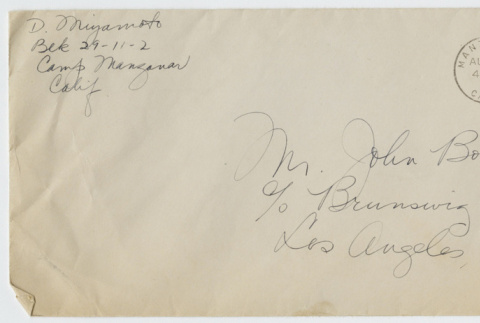 D. Miyamoto
Blk 29-11-2
Camp Manzanar
Calif
MAN
AU
4
C
Mr. John Bo
c/o Brunswig
Los Angeles,